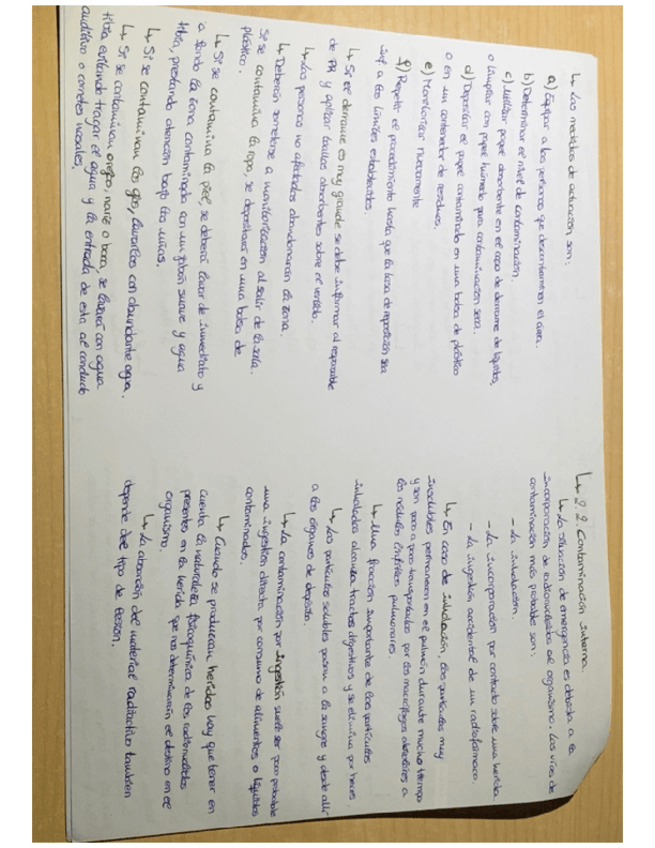 ↳ Las medidas de actuación son:
a) Equipar a las personas que descontaminen el área.
b) Determinar el nivel de contaminación.
c) Utilizar papel absorbente en el caso de derrame de líquidos,
o limpiar con papel húmedo para contaminación seca.
d) Depositar el papel contaminado en una bolsa de plástico
o en un contenedor de residuos.
e) Monitorizar nuevamente
f) Repetir el procedimiento hasta que la tasa de exposición sea
inf. a los límites establecidos.
↳ Si el derrame es muy grande se debe informar al responsable
de PR y aplicar paños absorbentes sobre el vertido.
↳ Las personas no afectadas abandonarán la zona.
↳ Deberán someterse a monitorización al salir de la sala.
Si se contamina la ropa, se depositará en una bolsa de
plástico.
↳ Si se contamina la piel, se deberá lavar de inmediato y
a fondo la zona contaminada con un jabón suave y agua
tibia, prestando atención bajo las uñas.
↳ Si se contaminan los ojos, lavarlos con abundante agua.
↳ Si se contaminan orejas, nariz o boca, se lavará con agua
tibia evitando tragar el agua y la entrada de esta al conducto
auditivo o cornetes nasales.
↳ 2.2. Contaminación interna.
↳ La situación de emergencia es debida a la
incorporación de radionucleidos al organismo. Las vías de
contaminación más probable son:
- La inhalación.
- La incorporación por contacto sobre una herida.
- La ingestión accidental de un radiofármaco.
↳ En caso de inhalación, las partículas muy
insolubles permanecen en el pulmón durante mucho tiempo
y son poco a poco transportadas por los macrófagos alveolares a
los nódulos linfáticos pulmonares.
↳ Una fracción importante de las partículas
inhaladas alcanza tractos digestivos y se elimina por heces.
↳ Las partículas solubles pasan a la sangre y desde allí
a los órganos de depósito.
↳ La contaminación por ingestión suele ser poco probable
una ingestión directa por consumo de alimentos o líquidos
contaminados.
↳ Cuando se produzcan heridas hay que tener en
cuenta la naturaleza fisicoquímica de los radionucleidos
presentes en la herida que nos determinarán el destino en el
organismo.
↳ La absorción del material radiactivo también
depende del tipo de lesión.